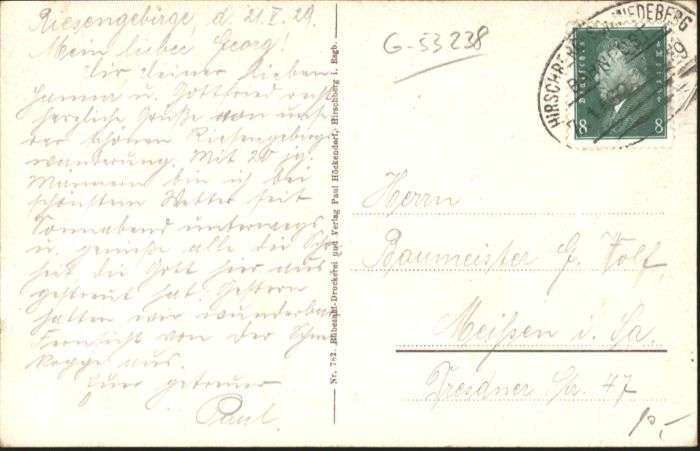 Riesengebirge, d. 21.V.29.
Mein lieber Georg!
Dir deiner lieben
Hanna u. Gottfried recht
herzliche Grüße von unse
rer schönen Riesengebirgs
wanderung. Mit 20 jg.
Männern bin ich bei
schönstem Wetter seit
Sonnabend unterwegs
u. genieße alle die Schön
heit die Gott hier aus
gestreut hat. Gestern
hatten wir wunderbare
Fernsicht von der Schnee
koppe aus.
Euer getreuer
Paul.
Nr. 782. Rübezahl-Druckerei und Verlag Paul Höckendorf, Hirschberg i. Rsgb.
G-53238
Deutsches Reich
8 8
Herrn
Baumeister G. Wolf,
Meißen i. Sa.
Dresdner Str. 47
10,-